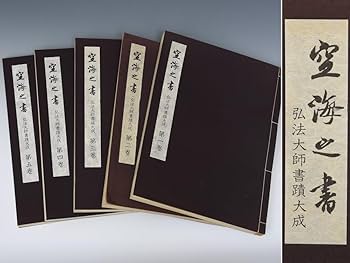 空海之書
弘法大師書蹟大成 第一卷
空海之書
弘法大師書蹟大成 第二卷
空海之書
弘法大師書蹟大成 第三卷
空海之書
弘法大師書蹟大成 第四卷
空海之書
弘法大師書蹟大成 第五卷
空海之書
弘法大師書蹟大成